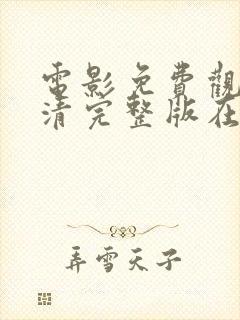 電影免費觀
清完整版在
弄雪天子